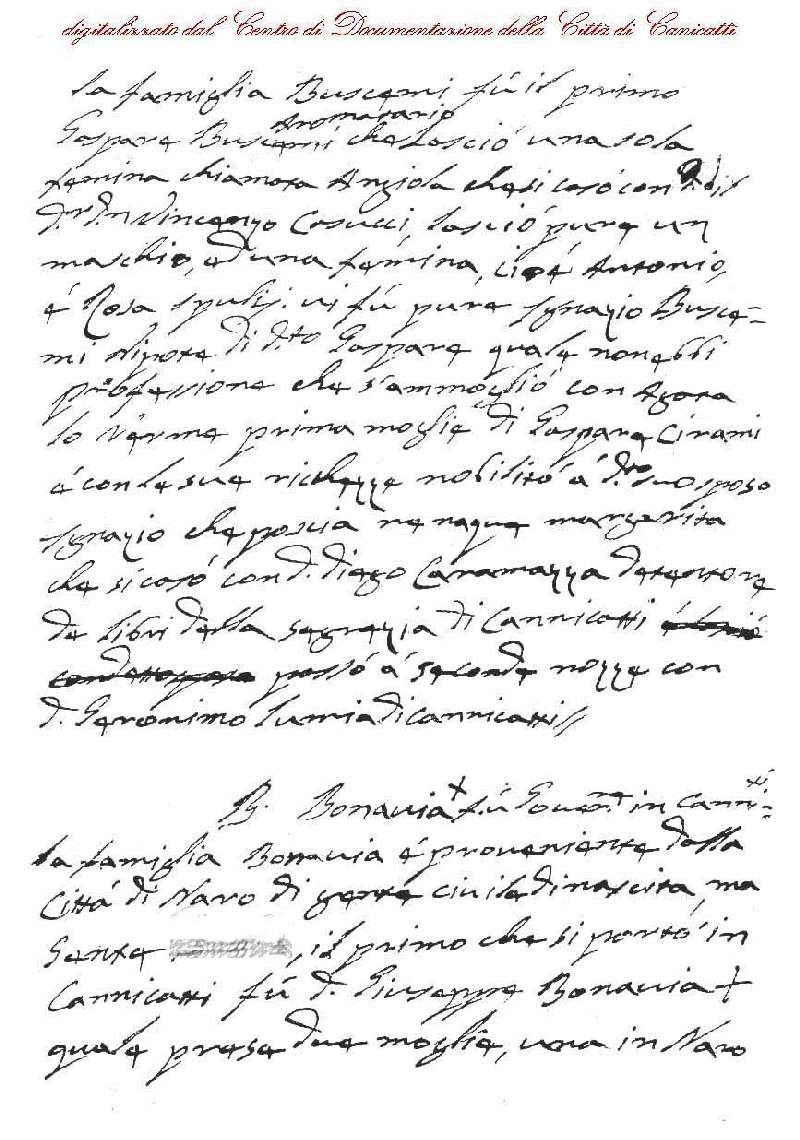 digitalizzato dal Centro di Documentazione della Città di Canicattì
la famiglia Buscemi fú il primo
Aromatario
Gaspare Buscemi che lasció una sola
femina chiamata Angiola che si casó con d. il
d.r d.n Vincenzo Casucci, lasció pure un
maschio, ed una femina, cioé Antonio,
é Rosa spulis. vi fú pure Ignazio Busce=
mi Nipote di d.to Gaspare quale non ebbi
professione che s'ammoglió con Agata
lo Verme prima moglie di Gaspare Cirami
é con le sue richezze nobilitó á d.to suo sposo
Ignazio che poscia ne naque margarita
che si casó con d. diego Caramazza detentore
de libri della segrezia di Cannicatti
passó á seconde nozze con
d. Geronimo lumia di cannicatti //
B. Bonavia + fú Gover.t in Canni=
la famiglia Bonavia é proveniente dalla
Cittá di Naro di gente civile di nascita, ma
Gente , il primo che si portó in
Cannicatti fú d. Giuseppe Bonavia +
quale prese due moglie, una in Naro